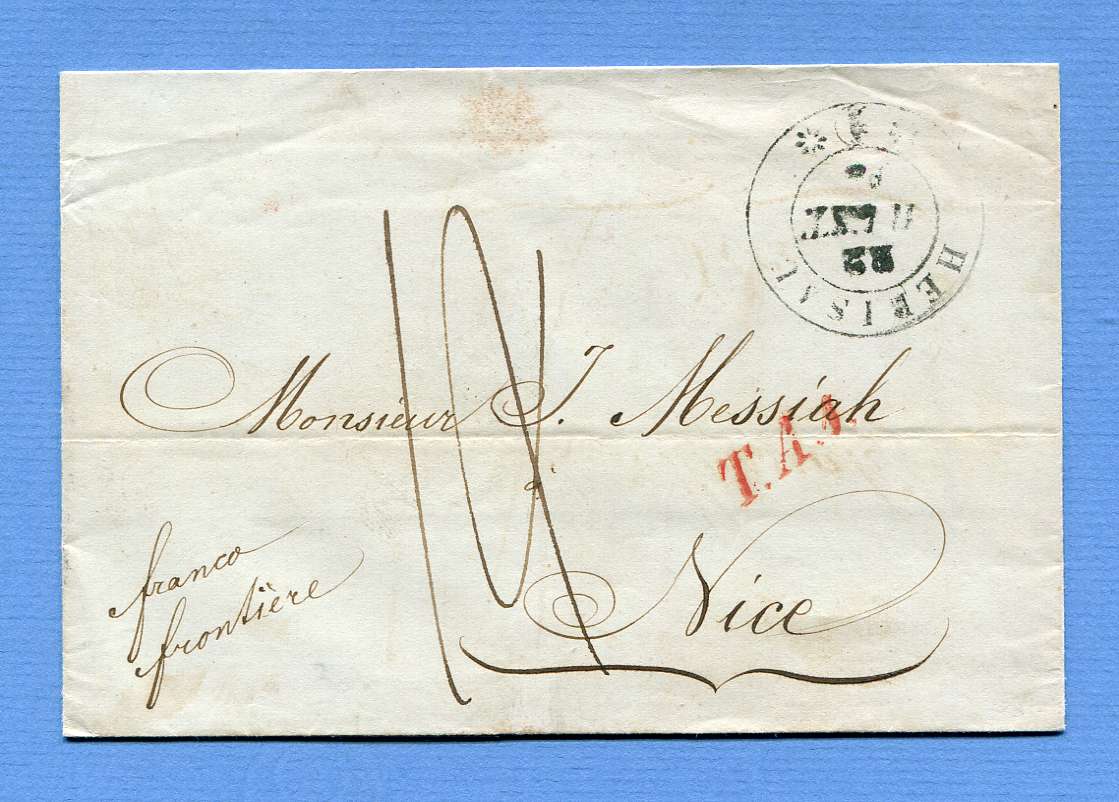 HERISAU
22
Monsieur J. Messiah
à
T.A.
Nice
franco
frontière